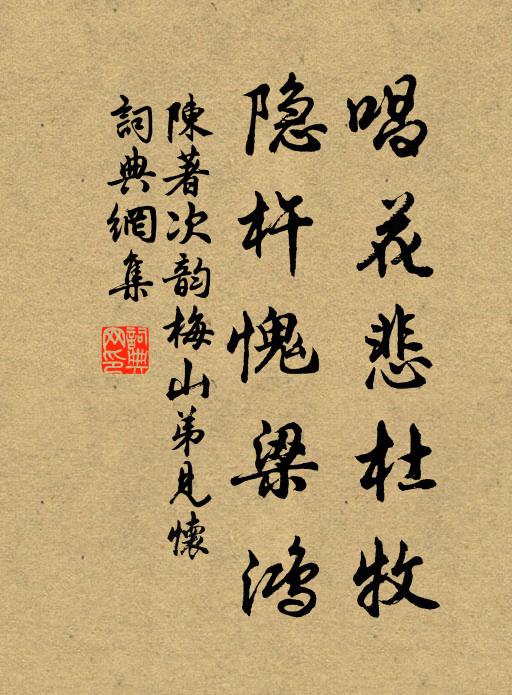 唱花悲杜牧
隐杵愧梁鸿
陳著次韵梅山弟見懷
詞典網集
詞典網印